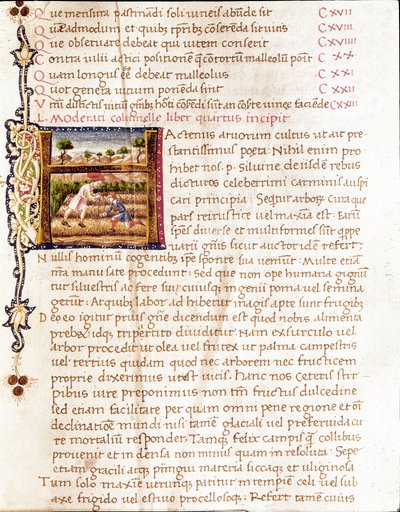 Que mensura pastinadi soli vineis abūde sit C XVII
Quēadmodum et quibꝰ tꝑibꝰ cōserēda sit vitis C XVIII
Que observare debeat qui vitem conserit C XVIIII
Contra iulii attici positionē ꝙ cōtortū malleolū poni C XX
Quam longus eē debeat malleolus C XXI
Quot genera vitium ponēda sint C XXII
L. Moderati columelle liber quartus incipit
Actenis arvorum cultus ut ait pre
stantissimus poeta: Nihil enim pro
hibet nos .p. Silvine de iisdē rebus
dicturos celeberrimi carminis auspi
cari principia: Seqtur arborū cura que
pars rei rusticę vel maxīa est: earū
spēs diversę et multiformes sūt qppe
varii gn̄is sicut auctor idē refert:
Nullis hominū cogentibꝰ ipsę sponte sua veniūt: Multe etiā
nr̄a manu satę procedunt: Sed que non ope humana gignū
tur silvestres ac fere sui cuiusqꝫ ingenii poma vel semina
gerūt: At quibꝰ labor adhibetur magis apte sunt frugibꝰ
De eo igitur prius gn̄e dicendum est quod nobis alimenta
prebet idqꝫ tripertito dividitur Nam ex surculo vel
arbor procedit ut olea vel frutex ut palma campestris
vel tertius quidam quod nec arborem nec fruticem
proprie dixerimus ut est vitis: hanc nos ceteris stir
pibus iure preponimus non tm̄ fructus dulcedine
sed etiam facilitate per quam omni pene regione et oī
declinatiōe mundi nisi tamē glaciali vel prefervida cu
re mortaliū respondet: Tamqꝫ felix campis q̄ collibus
provenit et in densa non minus quam in resoluta: Sepe
etiam gracili atqꝫ pingui materia siccaqꝫ et uliginosa
Tum solo maxīe utrunqꝫ patitur intemperiē celi vel sub
axe frigido vel estivo procellosoqꝫ: Refert tamē cuius